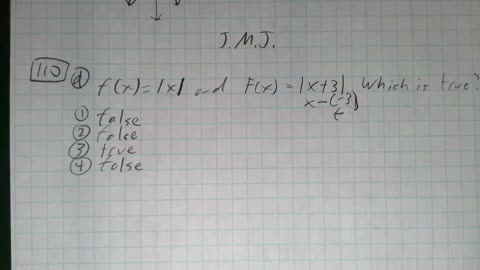 J.M.J.
110 d f(x)=|x| and F(x)=|x+3| Which is true?
x-(-3)
t
1 false
2 false
3 true
4 false